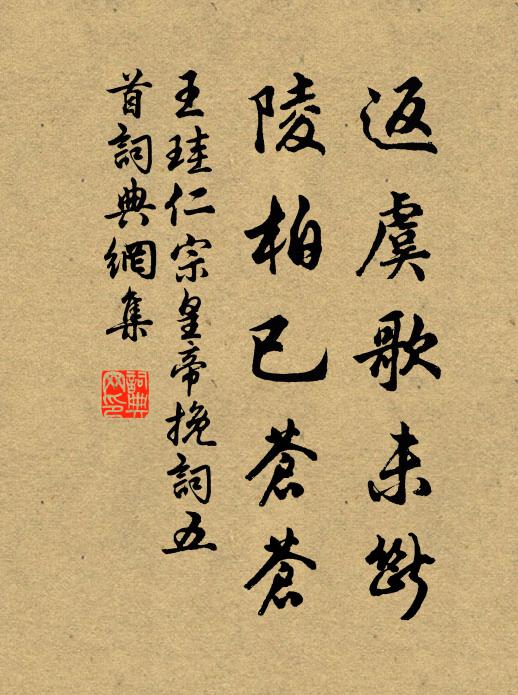 返虞歌未斷
陵柏已蒼蒼
王珪仁宗皇帝挽詞五
首詞典網集
詞典
网印